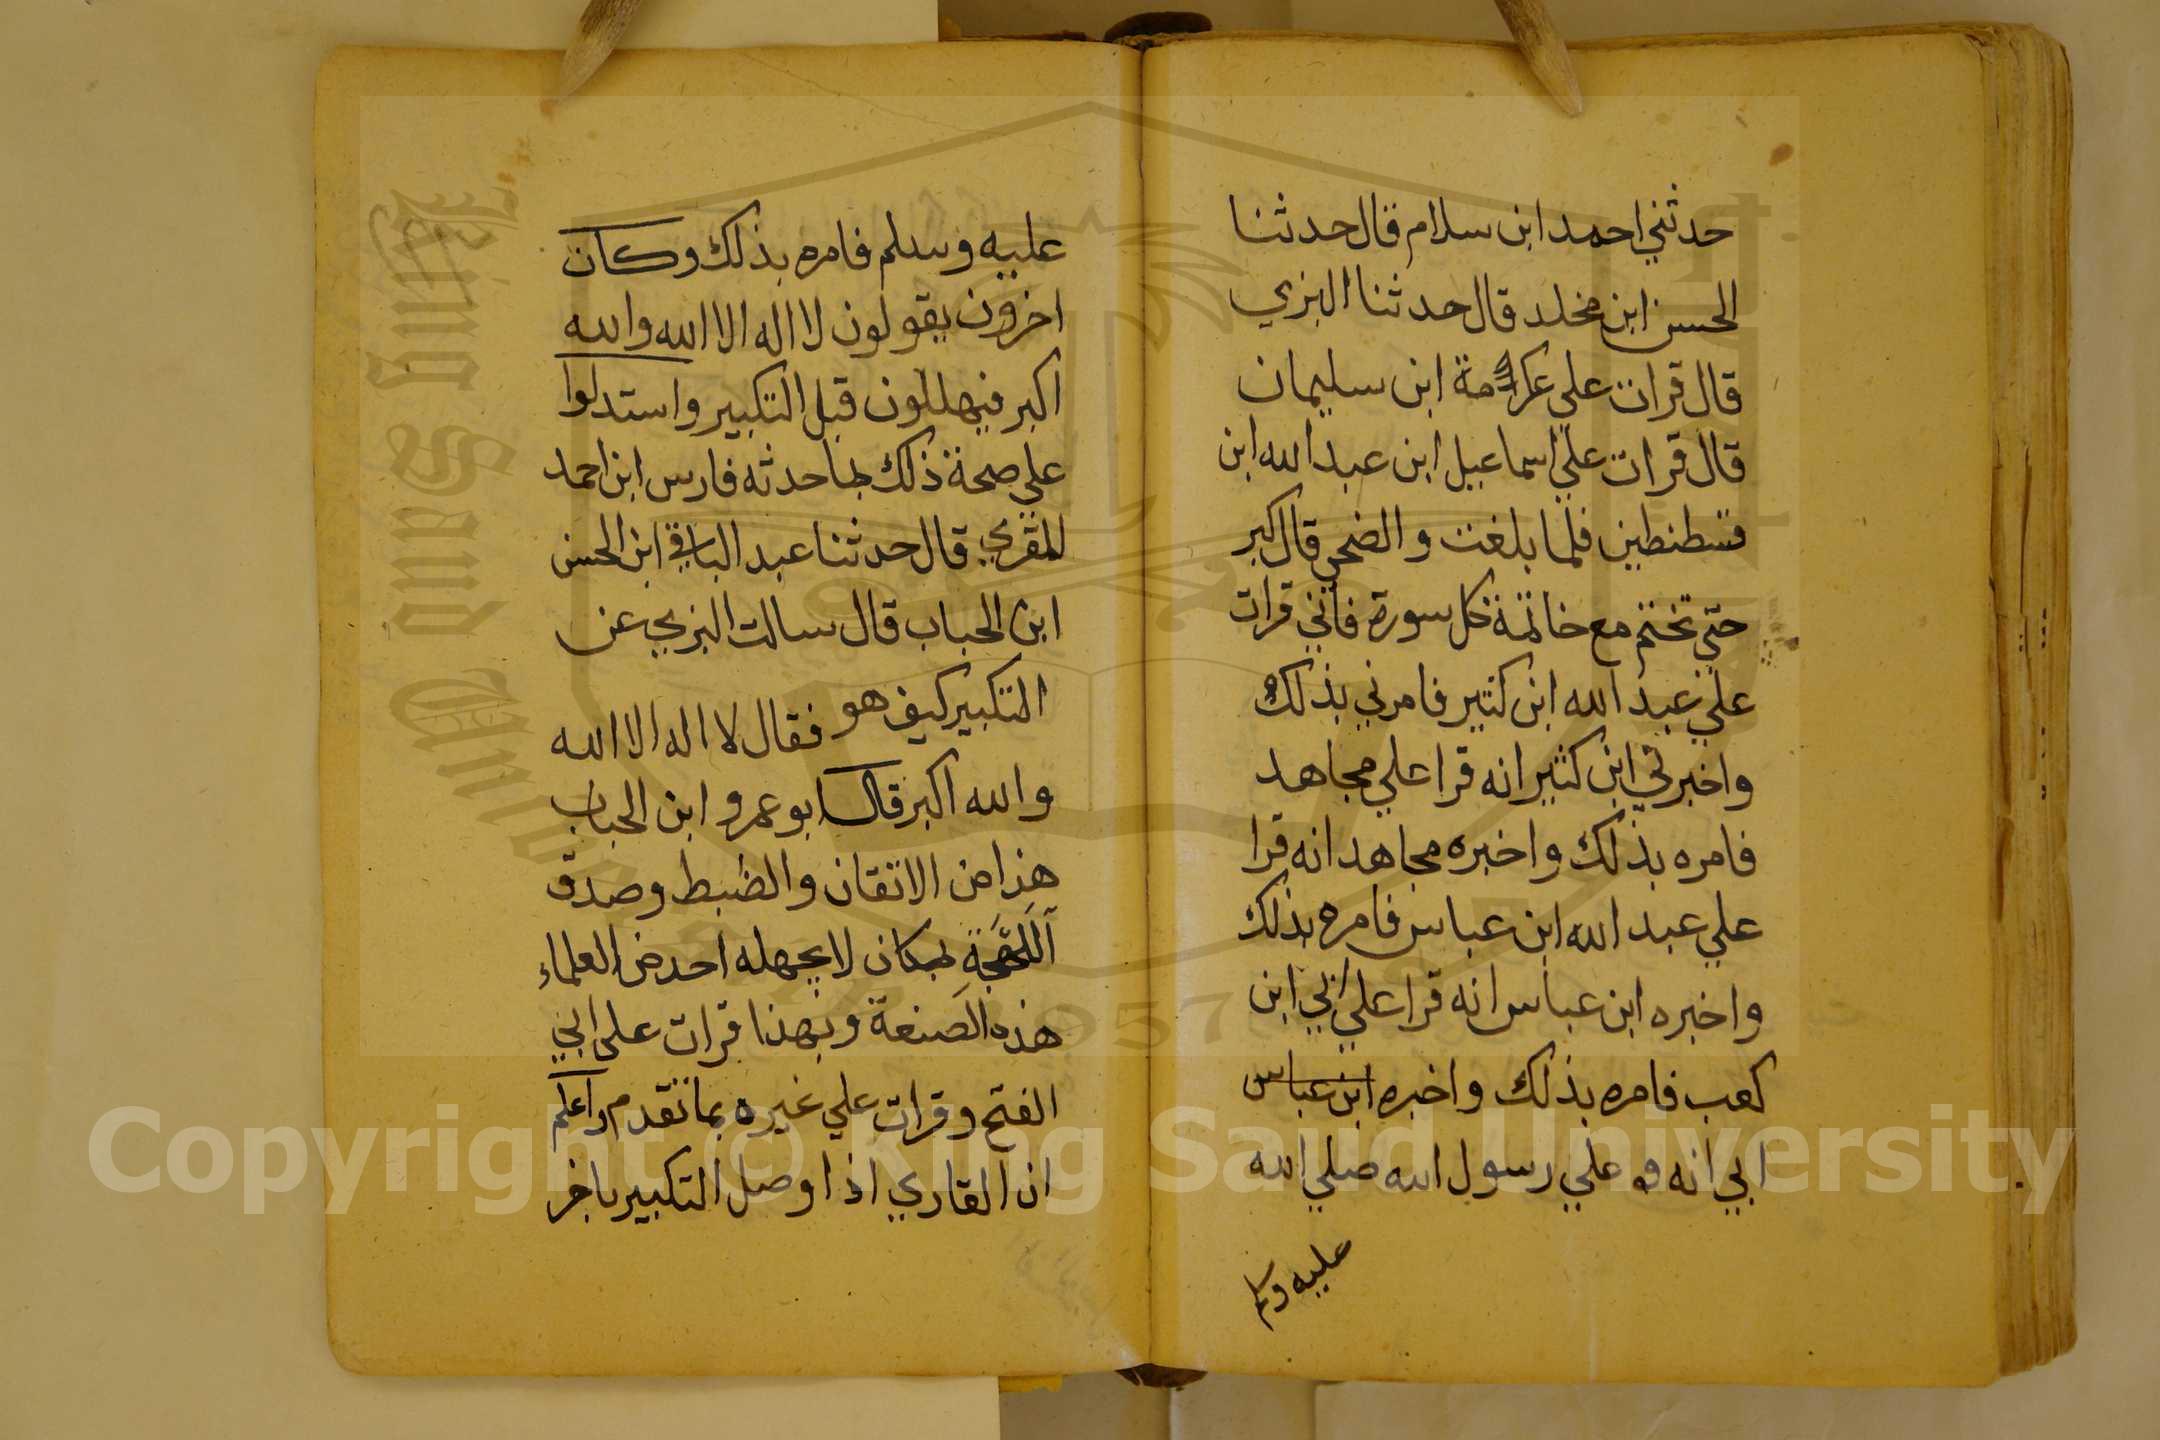 حدثني احمد ابن سلام قال حدثنا
الحسن ابن مخلد قال حدثنا البزي
قال قرات علي عكرمة ابن سليمان
قال قرات علي اسماعيل ابن عبد الله ابن
قسطنطين فلما بلغت والضحي قال كبر
حتي تختم مع خاتمة كل سورة فاني قرات
علي عبد الله ابن كثير فامرني بذلك
واخبرني ابن كثير انه قرا علي مجاهد
فامره بذلك واخبره مجاهد انه قرا
علي عبد الله ابن عباس فامره بذلك
واخبره ابن عباس انه قرا علي ابي ابن
كعب فامره بذلك واخبره ابن عباس
ابي انه علي رسول الله صلي الله
عليه وسلم
عليه وسلم فامره بذلك وكان
اخرون يقولون لا اله الا الله والله
اكبر فيهللون قبل التكبير واستدلوا
علي صحة ذلك بما حدثه فارس ابن احمد
المقري قال حدثنا عبد الباقي ابن الحسن
ابن الحباب قال سالت البزي عن
التكبير كيف هو فقال لا اله الا الله
والله اكبر قال ابو عمرو ابن الحباب
هذا من الاتقان والظبط وصدق
اللهجة بمكان لا يجهله احد من العلماء
هذه الصنعة وبهذا قرات على ابي
الفتح وقرات علي غيره بما تقدم واعلم
ان القاري اذا وصل التكبير باخر
Copyright © King Saud University
King Saud University
1957